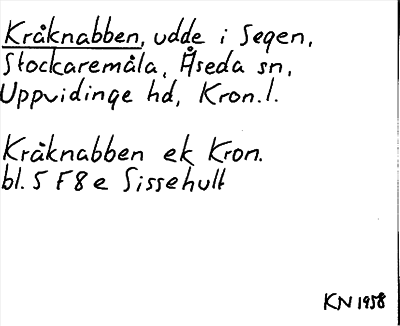 Kråknabben, udde i Segen,
Stockaremåla, Åseda sn,
Uppvidinge hd, Kron.l.
Kråknabben ek Kron.
bl. 5 F 8 e Sissehult
KN 1958